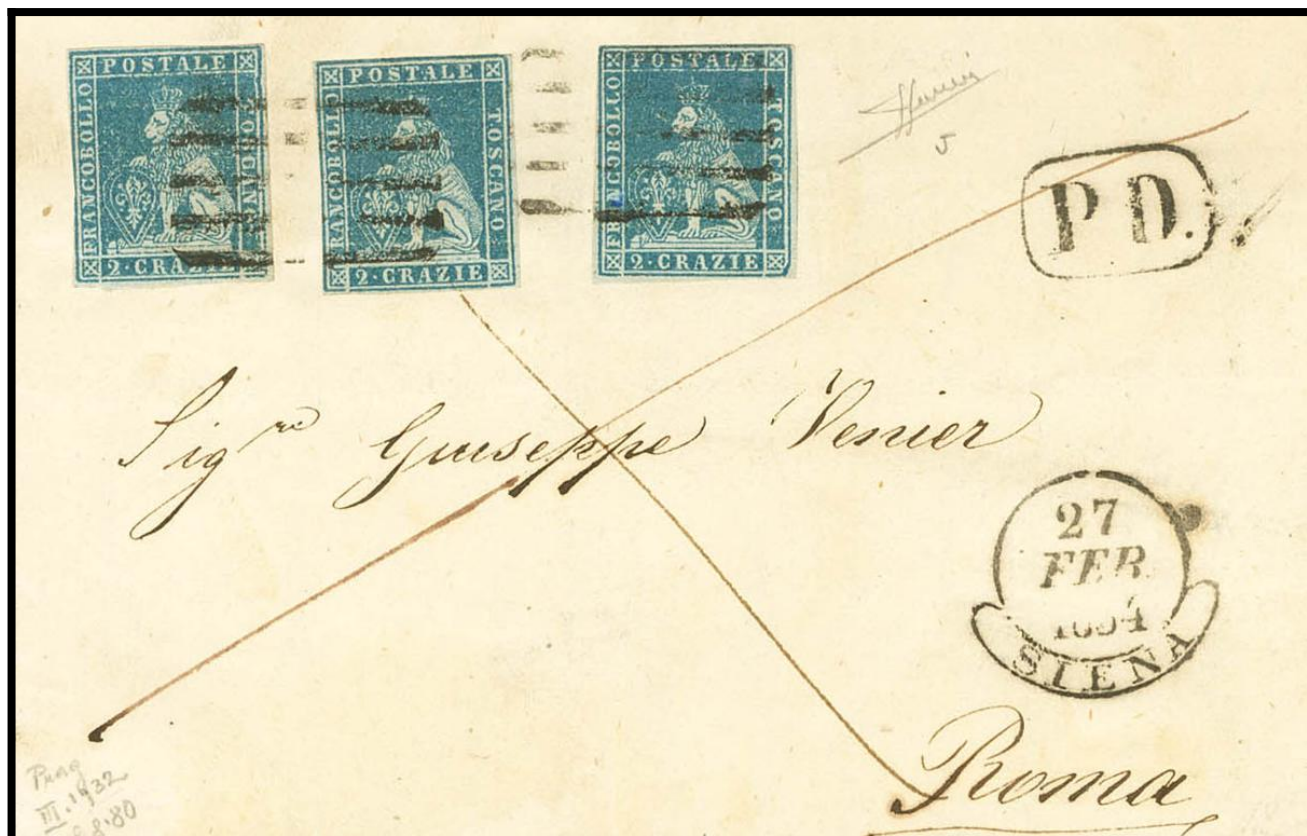 POSTALE
FRANCOBOLLO
TOSCANO
2·CRAZIE
POSTALE
FRANCOBOLLO
TOSCANO
2·CRAZIE
POSTALE
FRANCOBOLLO
TOSCANO
2·CRAZIE
P. D.
Sig.re Giuseppe Venier
27
FEB
1854
SIENA
Roma
Prag
III. 1932